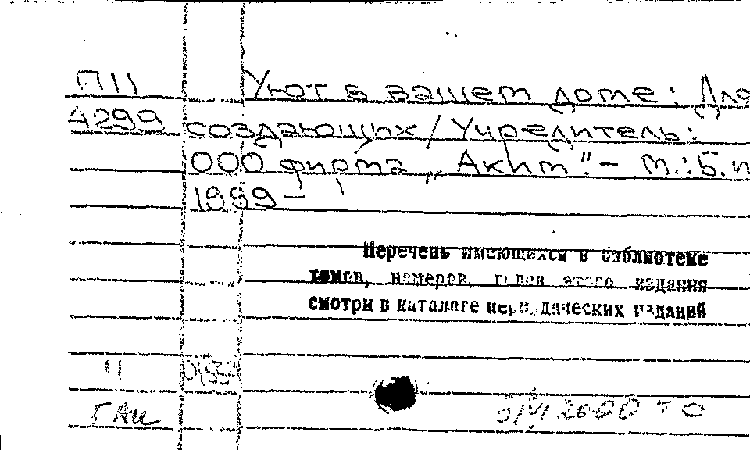 П11 Уют в вашем доме: Для
4299 создающих / Учредитель:
ООО фирма „Акит". – М.: Б.и
1999 –
Перечень имеющихся в библиотеке
томов, номеров, годов этого издания
смотри в каталоге периодических изданий
2000